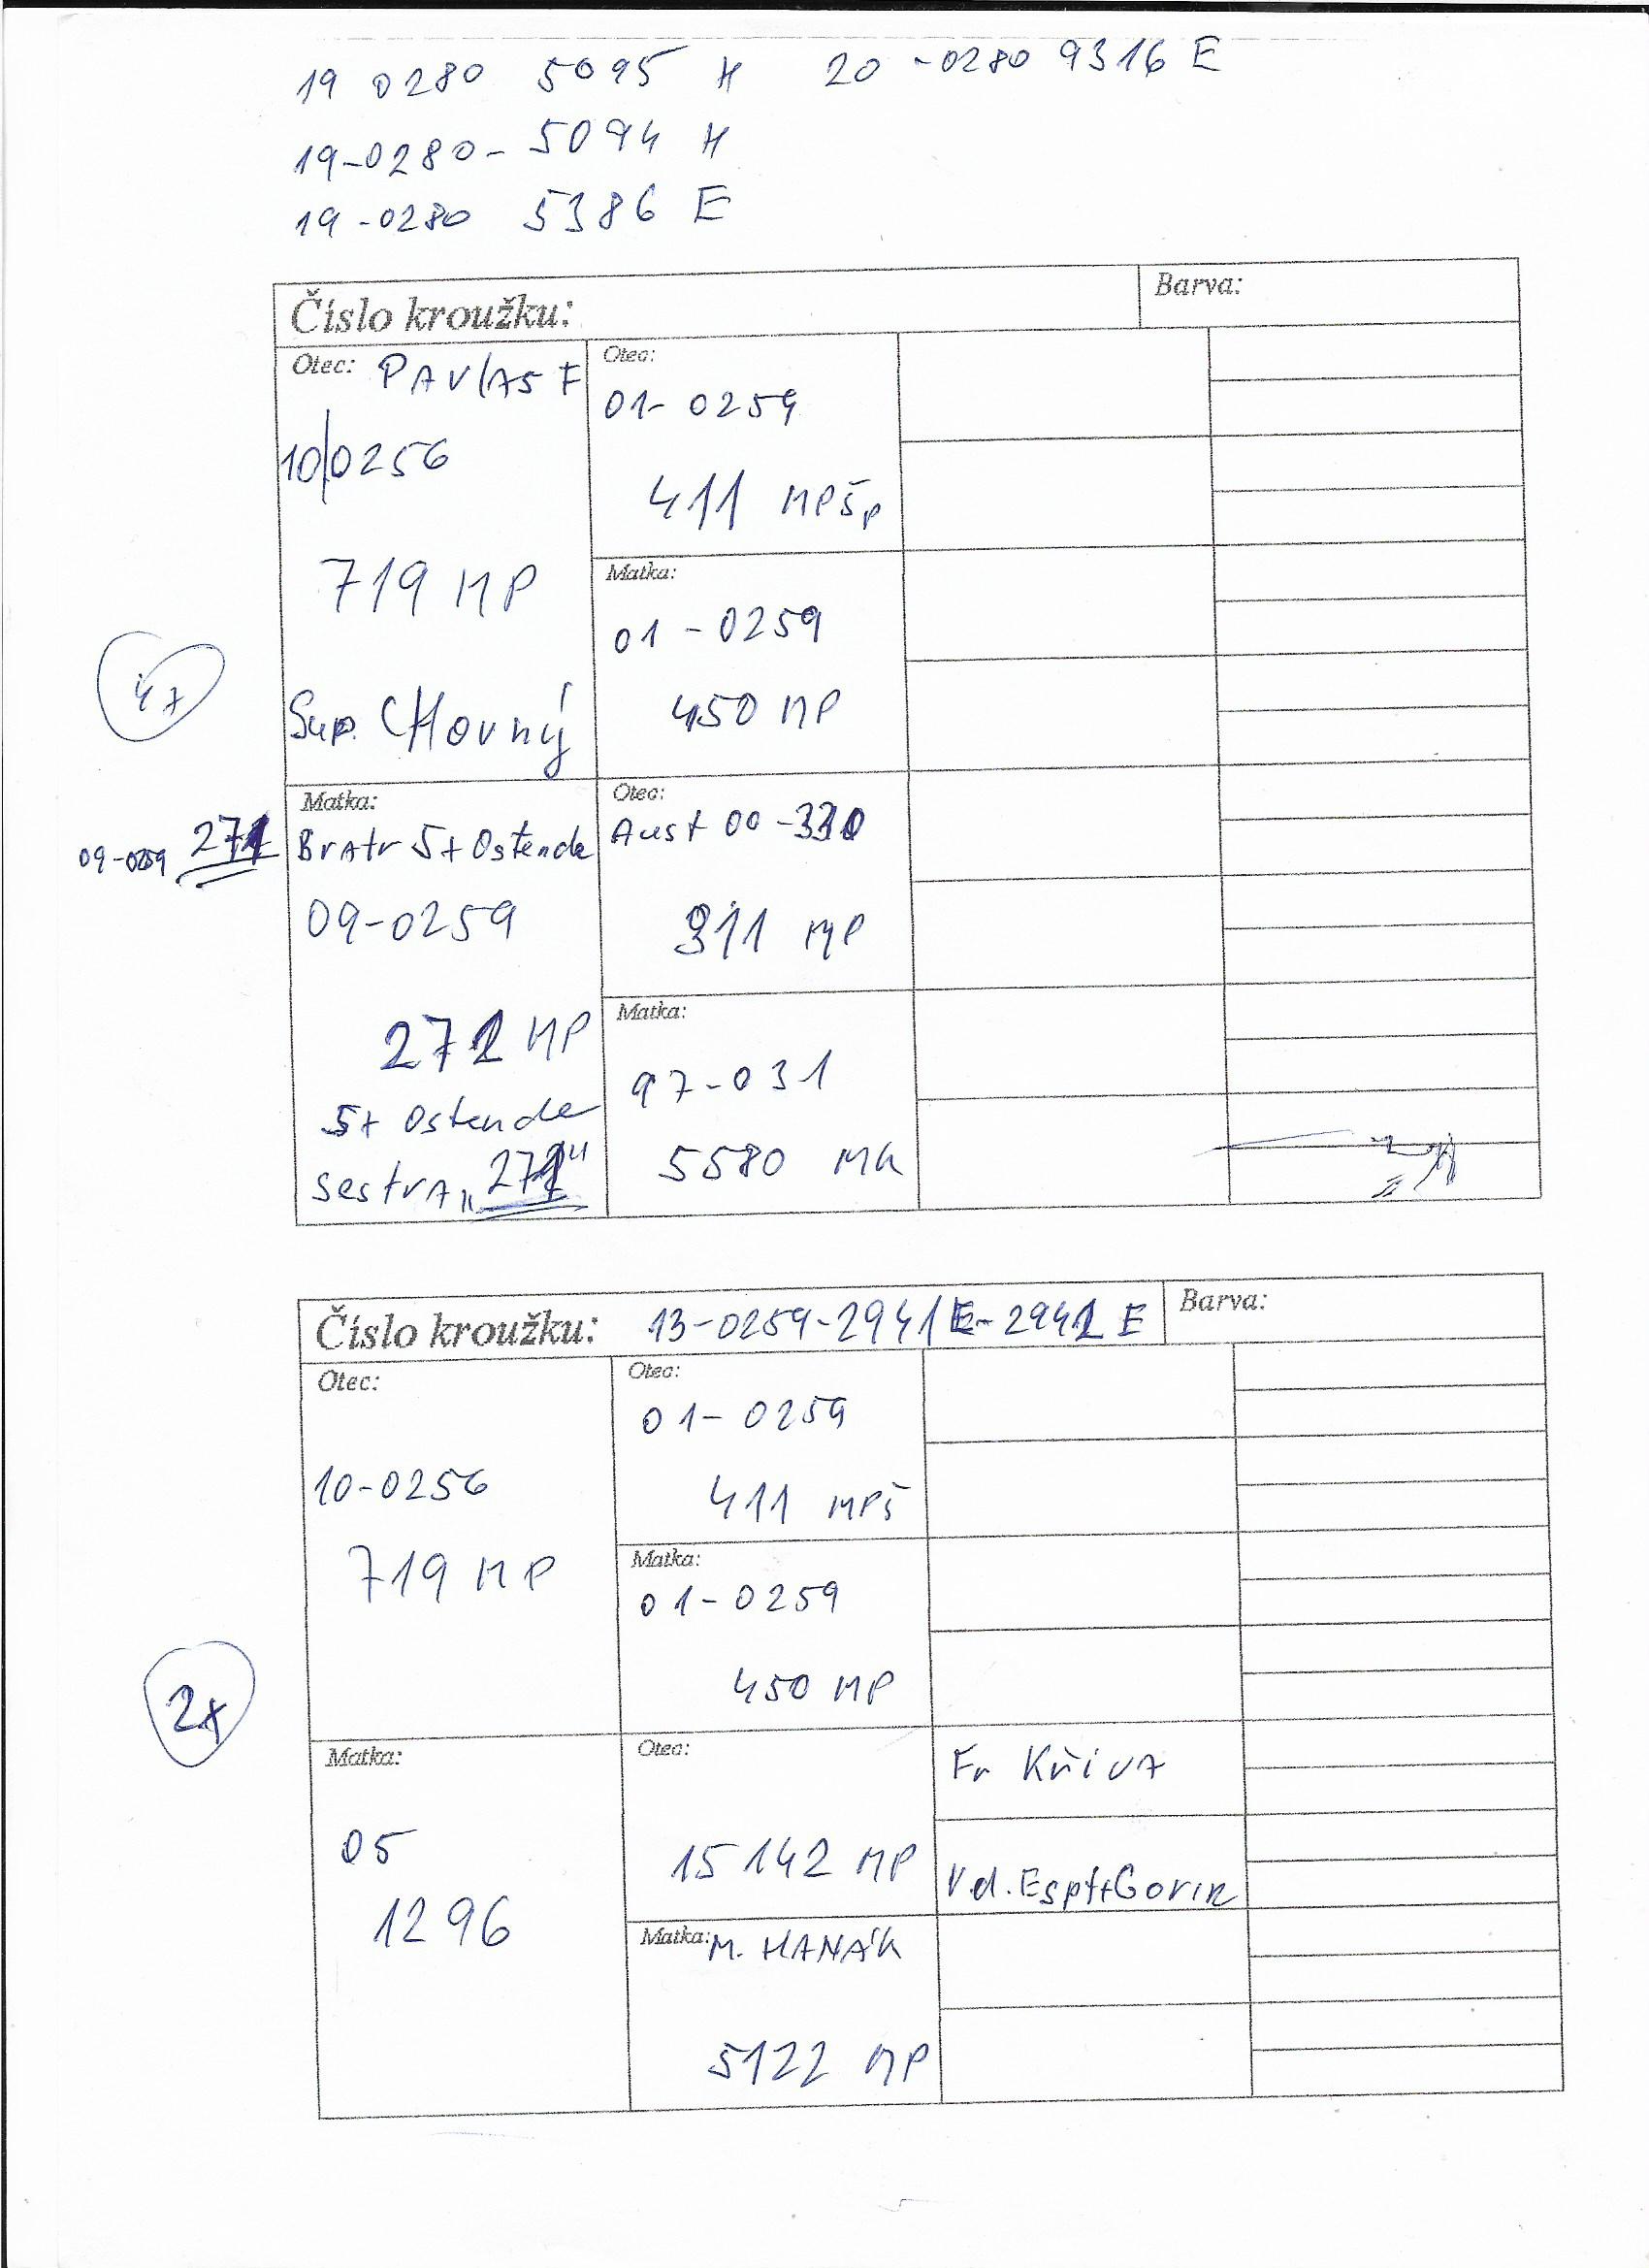 19 0280 5095 H 20-0280 9316 E
19-0280- 5094 H
19-0280 5386 E
Číslo kroužku:
Barva:
Otec: PAVLAS F
10/0256
719 MP
Sup. CHovný
Otec:
01-0259
411 MPŠp
Matka:
01-0259
450 MP
4x
09-0259 271
Matka:
Bratr 5x Ostende
09-0259
272 MP
5x Ostende
SestrA "271"
Otec:
Aust 00-330
911 MP
Matka:
97-031
5580 MK
Číslo kroužku: 13-0259-2941 E-2942 E
Barva:
Otec:
10-0256
719 MP
Otec:
01-0259
411 MPŠ
Matka:
01-0259
450 MP
2x
Matka:
05
1296
Otec:
15142 MP
Fr KřivA
Vd.
Matka: M. HANÁK
5122 MP